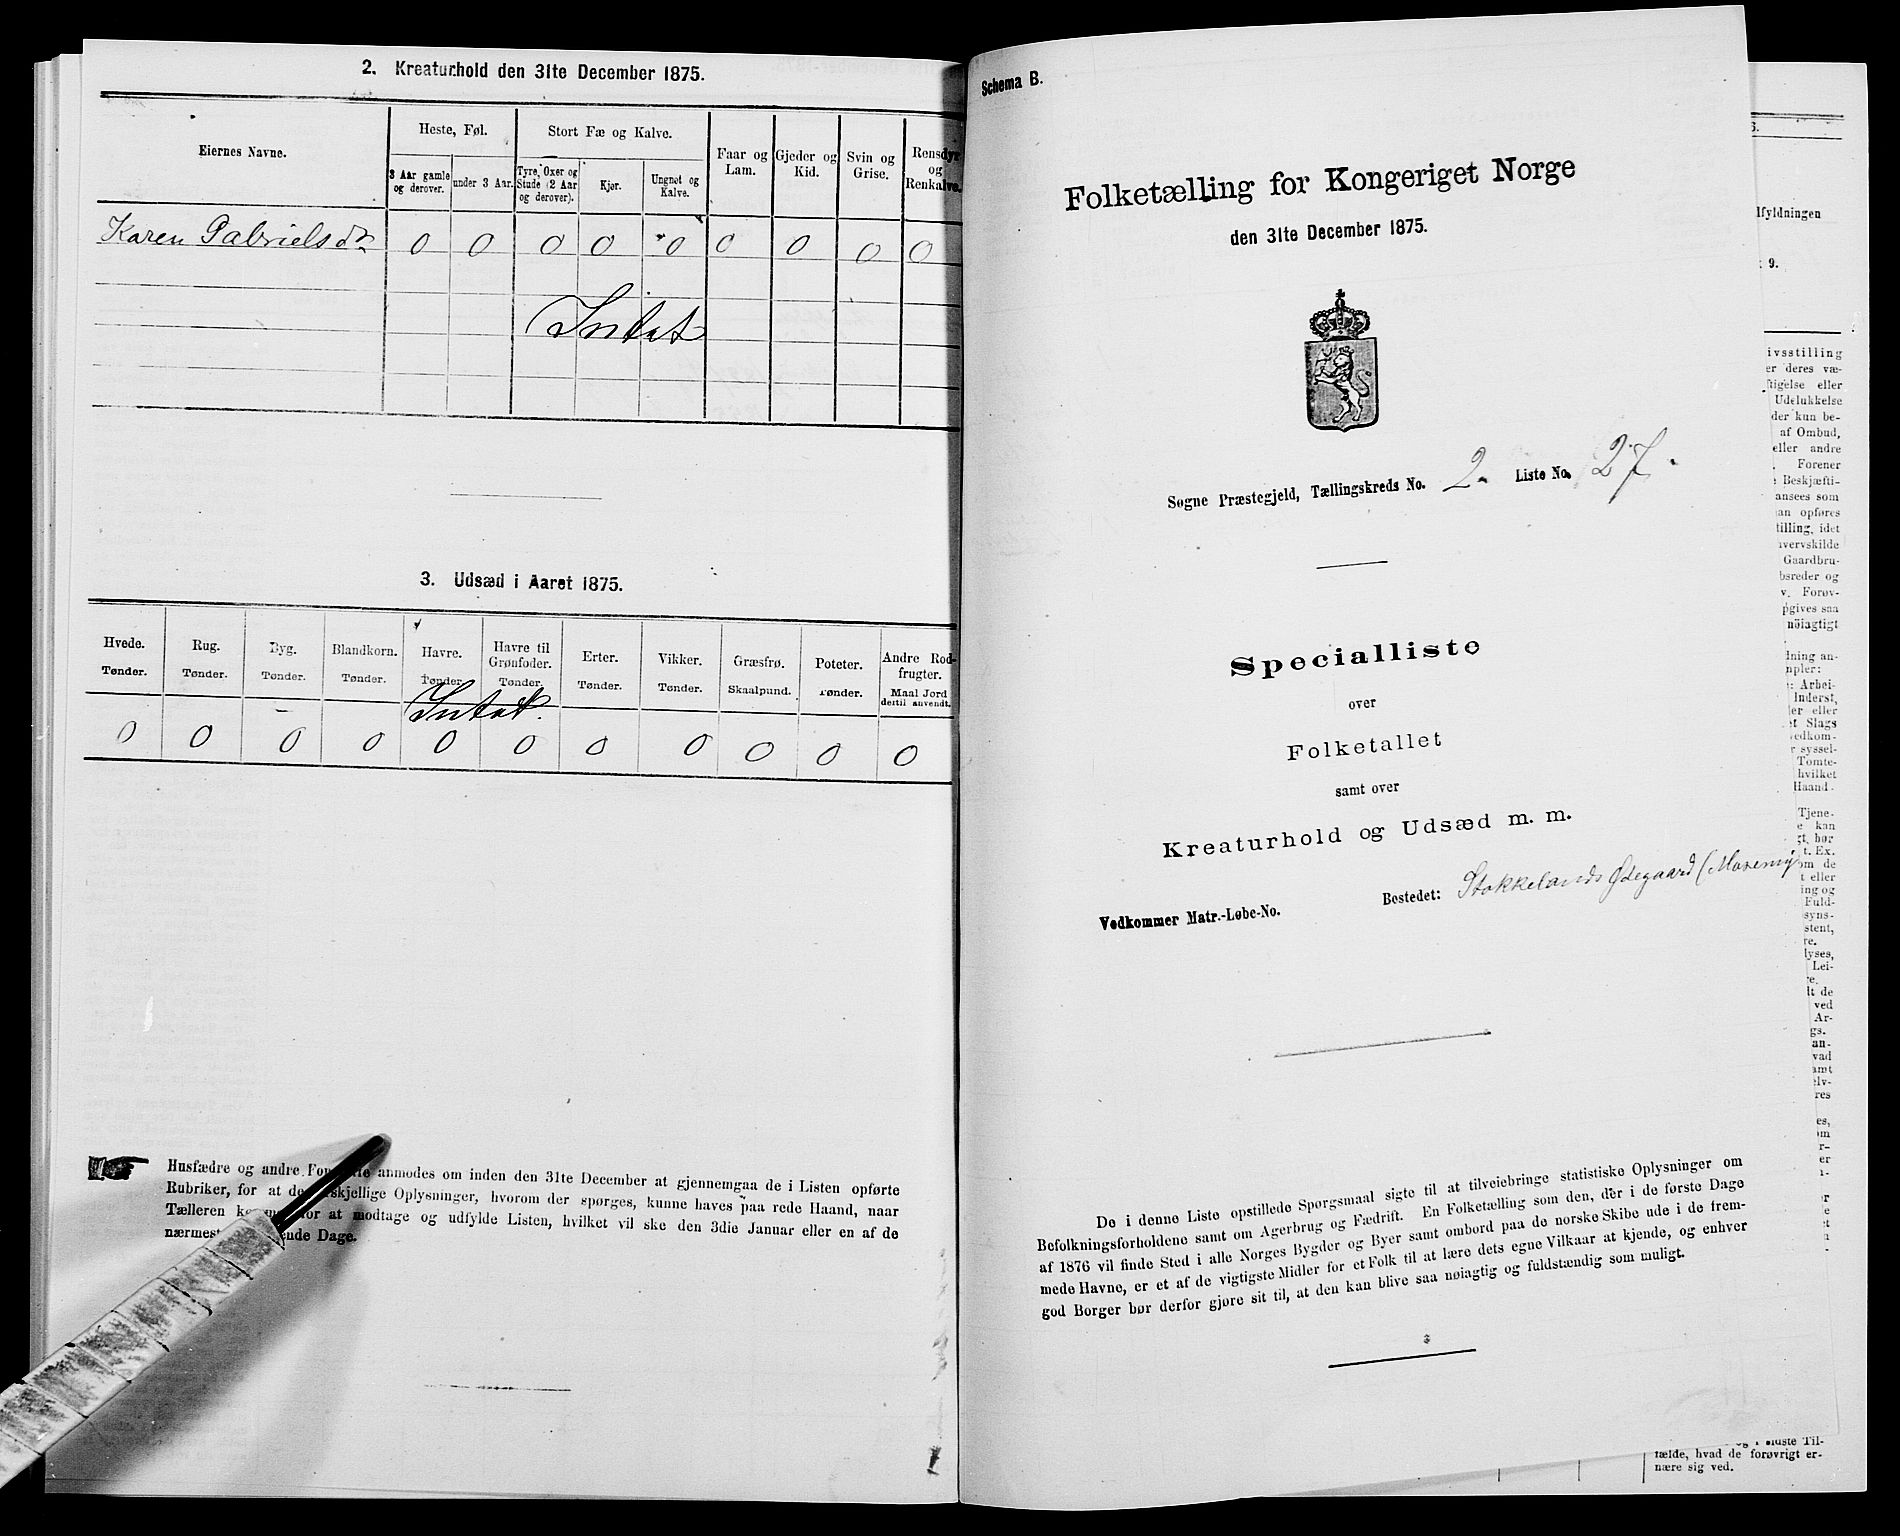 2. Kreaturhold den 31te December 1875.
Eiernes Navne.
Heste, Føl.
Stort Fæ og Kalve.
Faar og Lam.
Gjeder og Kid.
Svin og Grise.
Rensdyr og Renkalve.
3 Aar gamle og derover.
under 3 Aar.
Tyre, Oxer og Stude (2 Aar og derover).
Kjør.
Ungnøt og Kalve.
Karen Gabrielsdr 0 0 0 0 0 0 0 0 0
Intet
3. Udsæd i Aaret 1875.
Hvede. Rug. Byg. Blandkorn. Havre. Havre til Grønfoder. Erter. Vikker. Græsfrø. Poteter. Andre Rodfrugter.
Tønder. Tønder. Tønder. Tønder. Tønder. Tønder. Tønder. Tønder. Skaalpund. Tønder. Maal Jord dertil anvendt.
Intet.
0 0 0 0 0 0 0 0 0 0 0
Husfædre og andre anmodes om inden den 31te December at gjennemgaa de i Listen opførte
Rubriker, for at de Oplysninger, hvorom der spørges, kunne haves paa rede Haand, naar
Tælleren for at modtage og udfylde Listen, hvilket vil ske den 3die Januar eller en af de
Dage.
Schema B.
Folketælling for Kongeriget Norge
den 31te December 1875.
Søgne Præstegjeld, Tællingskreds No. 2. Liste No. 27.
Specialliste
over
Folketallet
samt over
Kreaturhold og Udsæd m. m.
Bostedet: Stokkelands Ødegaard
Vedkommer Matr.-Løbe-No.
De i denne Liste opstillede Spørgsmaal sigte til at tilveiebringe statistiske Oplysninger om
Befolkningsforholdene samt om Agerbrug og Fædrift. En Folketælling som den, der i de første Dage
af 1876 vil finde Sted i alle Norges Bygder og Byer samt ombord paa de norske Skibe ude i de frem-
mede Havne, er et af de vigtigste Midler for et Folk til at lære dets egne Vilkaar at kjende, og enhver
god Borger bør derfor gjøre sit til, at den kan blive saa nøiagtig og fuldstændig som muligt.
ivsstilling
er deres væ-
eller
Udelukkelse
der kun be-
af Ombud,
eller andre
Forener
Beskjæfti-
ansees som
opføres
idet
Gaardbru-
bsreder og
Forøv-
saa
nøiagtigt
tælde, hvad de forøvrigt er-
nære sig ved.